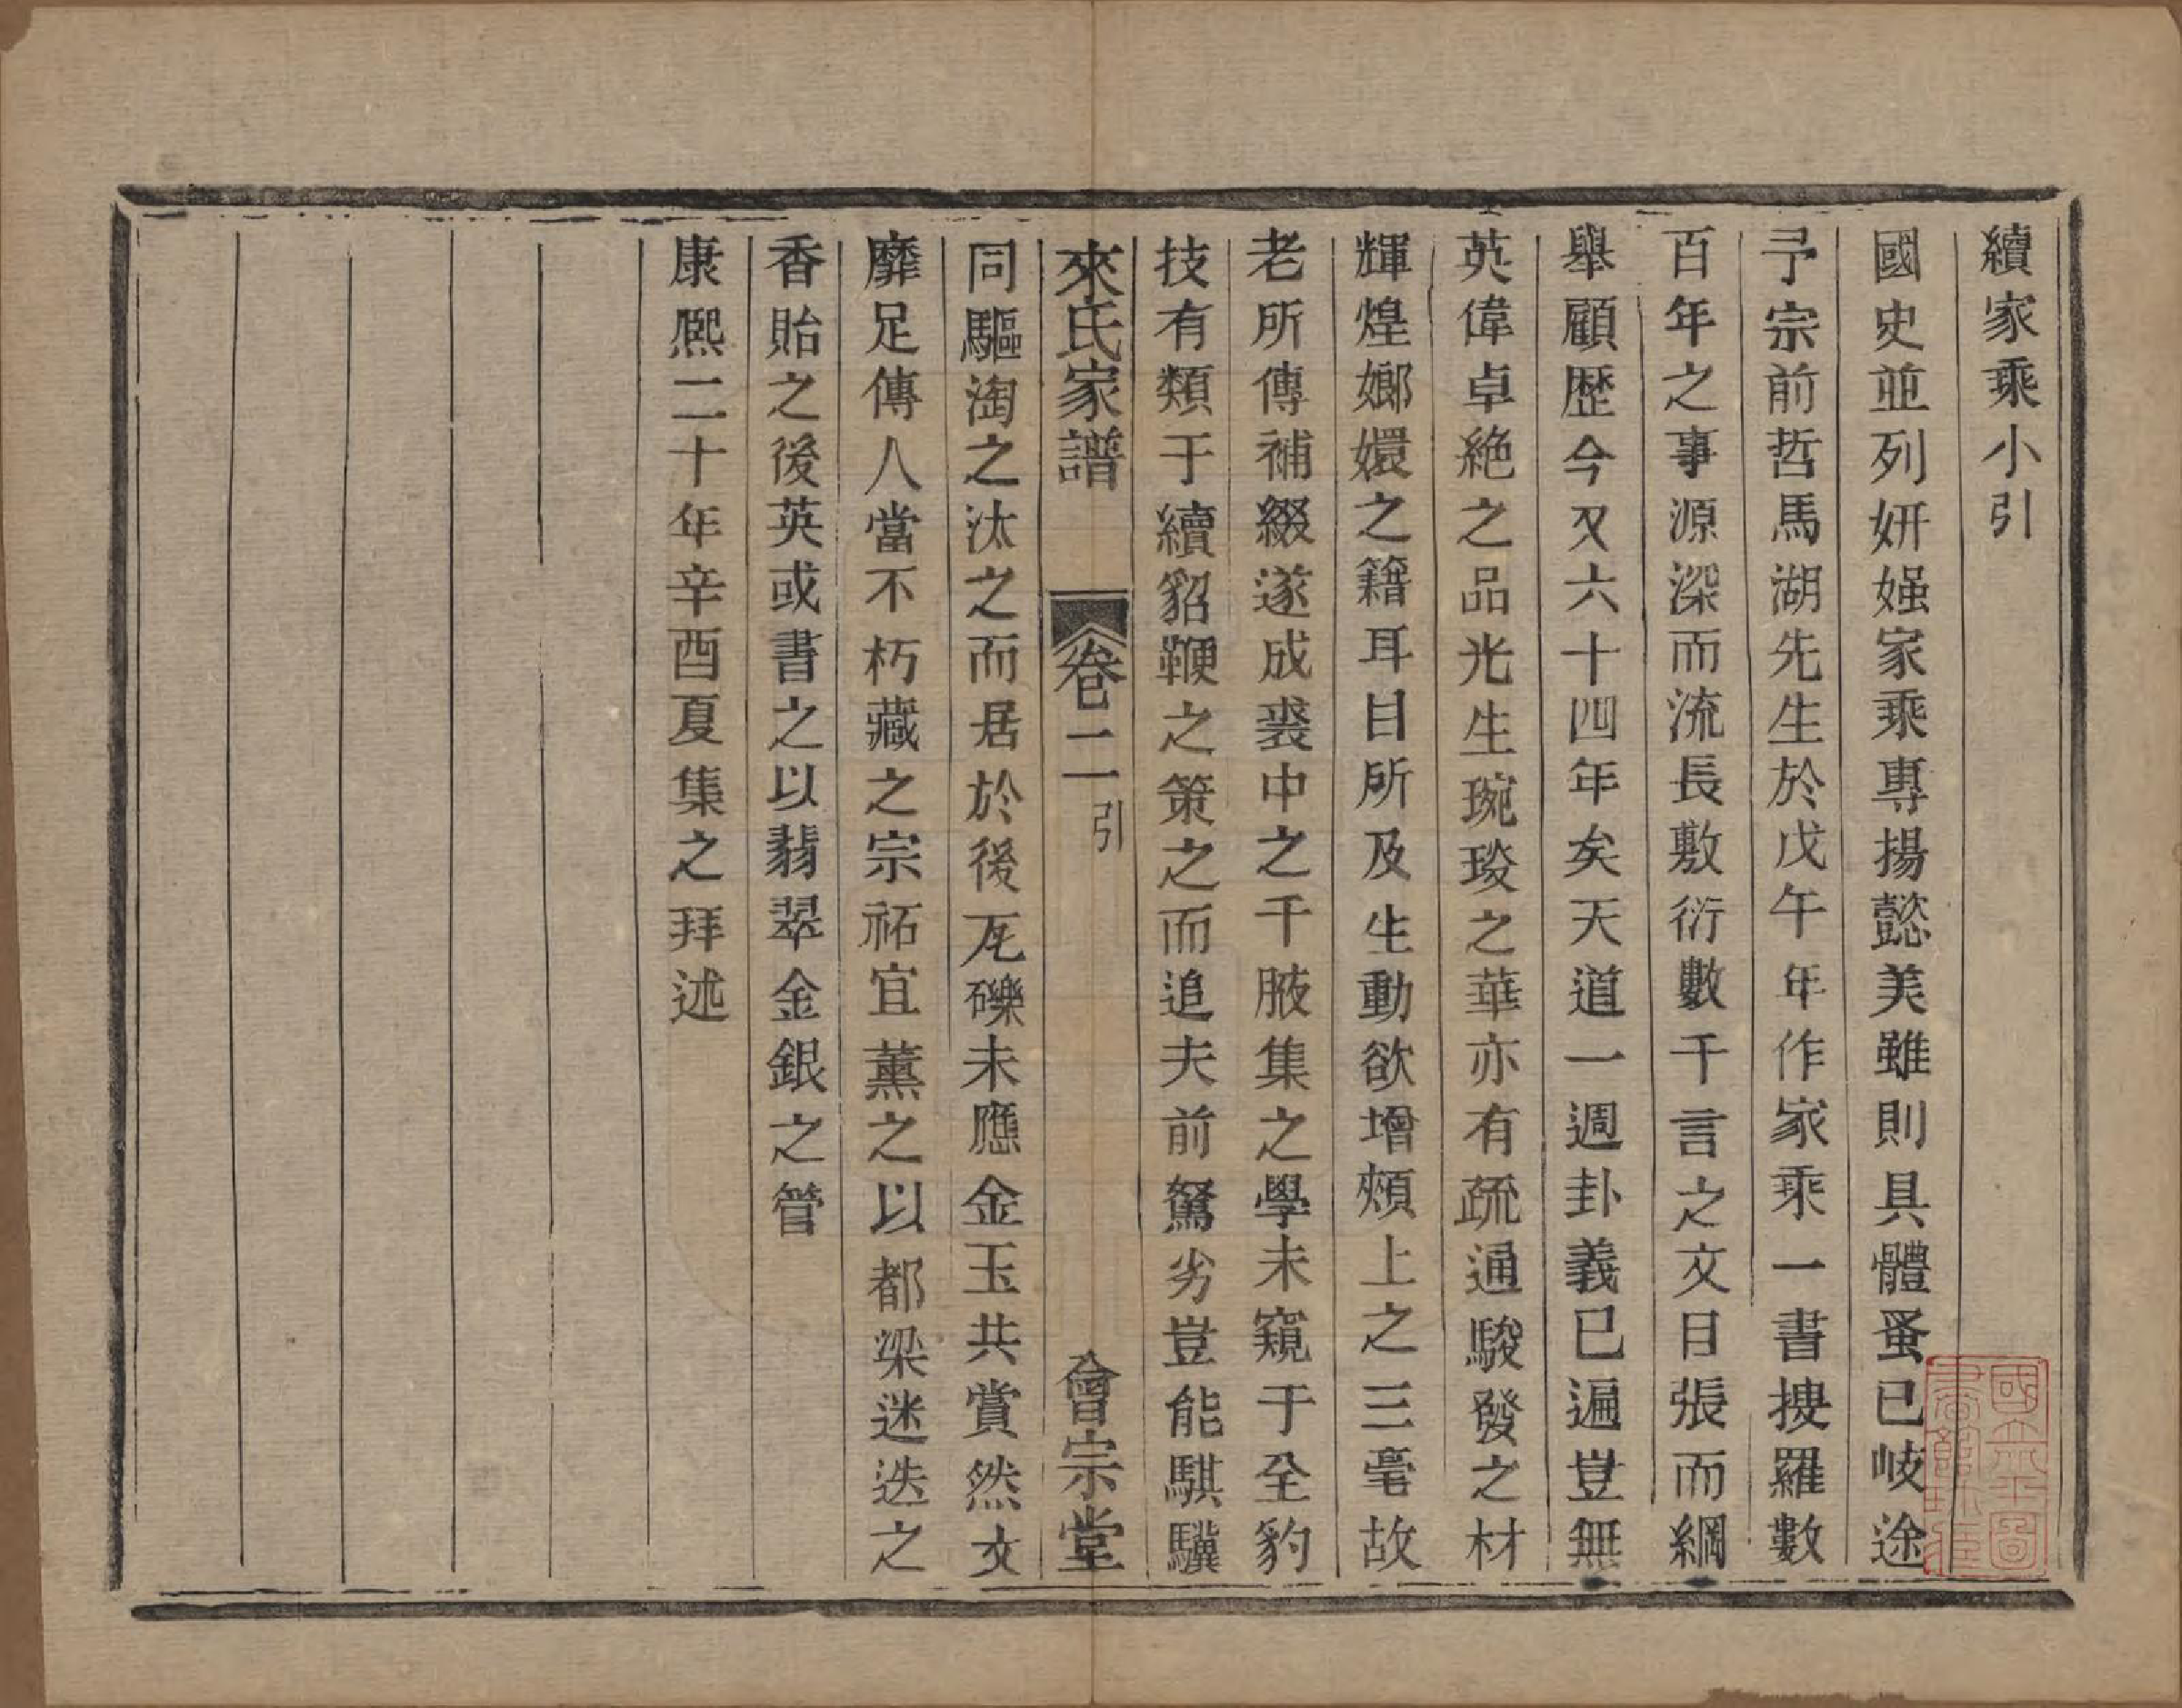 續家乘小引
國史並列妍媸家乘專揚懿美雖則具體蚤已岐途
予宗前哲馬湖先生於戊午年作家乘一書搜羅數
百年之事源深而流長敷衍數千言之文目張而綱
舉顧歷今又六十四年矣天道一週卦義已遍豈無
英偉卓絶之品光生琬琰之華亦有疏通駿發之材
輝煌嫏嬛之籍耳目所及生動欲增頰上之三毫故
老所傳補綴遂成裘中之千腋集之學未窺于全豹
技有類于續貂鞭之策之而追夫前駑劣豈能騏驥
來氏家譜 卷二 引 會宗堂
同驅淘之汰之而居於後瓦礫未應金玉共賞然文
靡足傳人當不朽藏之宗祏宜薰之以都梁迷迭之
香貽之後英或書之以翡翠金銀之管
康熙二十年辛酉夏集之拜述